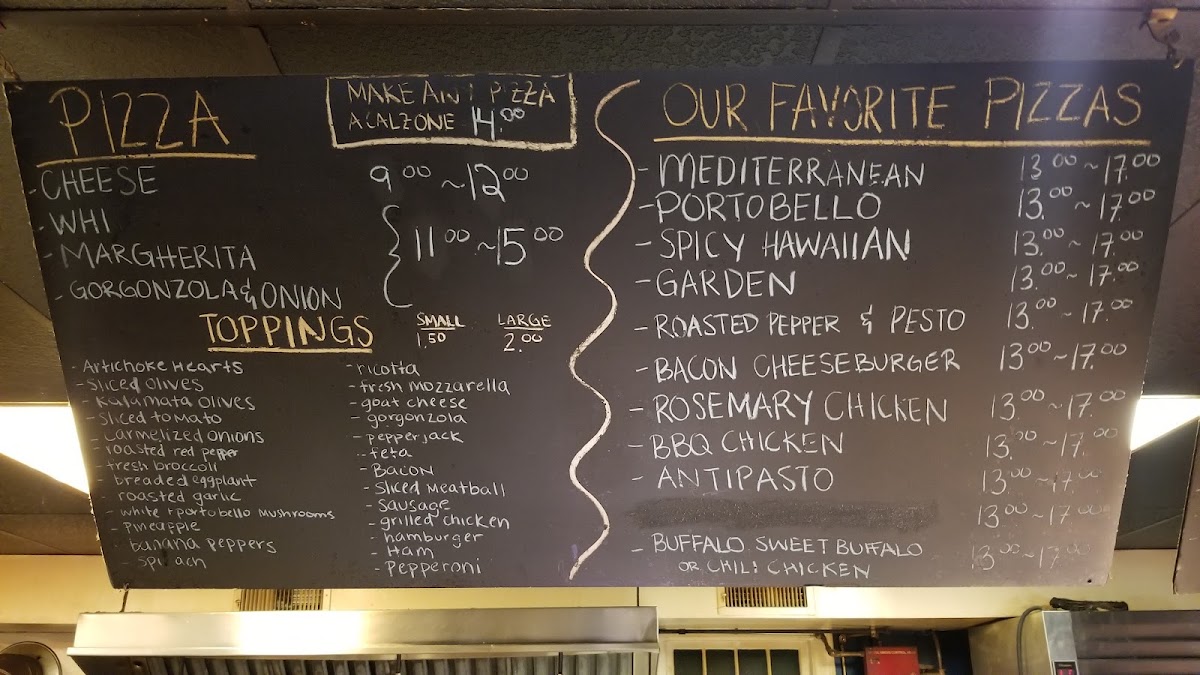 PIZZA
MAKE ANY PIZZA
A CALZONE 14.00
- CHEESE 9 00 ~ 12 00
- WHI
- MARGHERITA 11 00 ~ 15 00
- GORGONZOLA & ONION
TOPPINGS
SMALL LARGE
1.50 2.00
- Artichoke Hearts
- Sliced Olives
- Kalamata Olives
- Sliced tomato
- Carmelized Onions
- roasted red pepper
- fresh broccoli
- breaded eggplant
- roasted garlic
- white + portobello Mushrooms
- Pineapple
- banana peppers
- spi ach
- ricotta
- fresh Mozzarella
- goat cheese
- gorgonzola
- pepperjack
- feta
- Bacon
- Sliced Meatball
- Sausage
- grilled chicken
- hamburger
- Ham
- Pepperoni
OUR FAVORITE PIZZAS
- MEDITERRANEAN 13.00 ~ 17.00
- PORTOBELLO 13.00 ~ 17.00
- SPICY HAWAIIAN 13.00 ~ 17.00
- GARDEN 13.00 ~ 17.00
- ROASTED PEPPER & PESTO 13.00 ~ 17.00
- BACON CHEESEBURGER 13.00 ~ 17.00
- ROSEMARY CHICKEN 13.00 ~ 17.00
- BBQ CHICKEN 13.00 ~ 17.00
- ANTIPASTO 13.00 ~ 17.00
13.00 ~ 17.00
- BUFFALO SWEET BUFFALO 13.00 ~ 17.00
OR CHILI CHICKEN